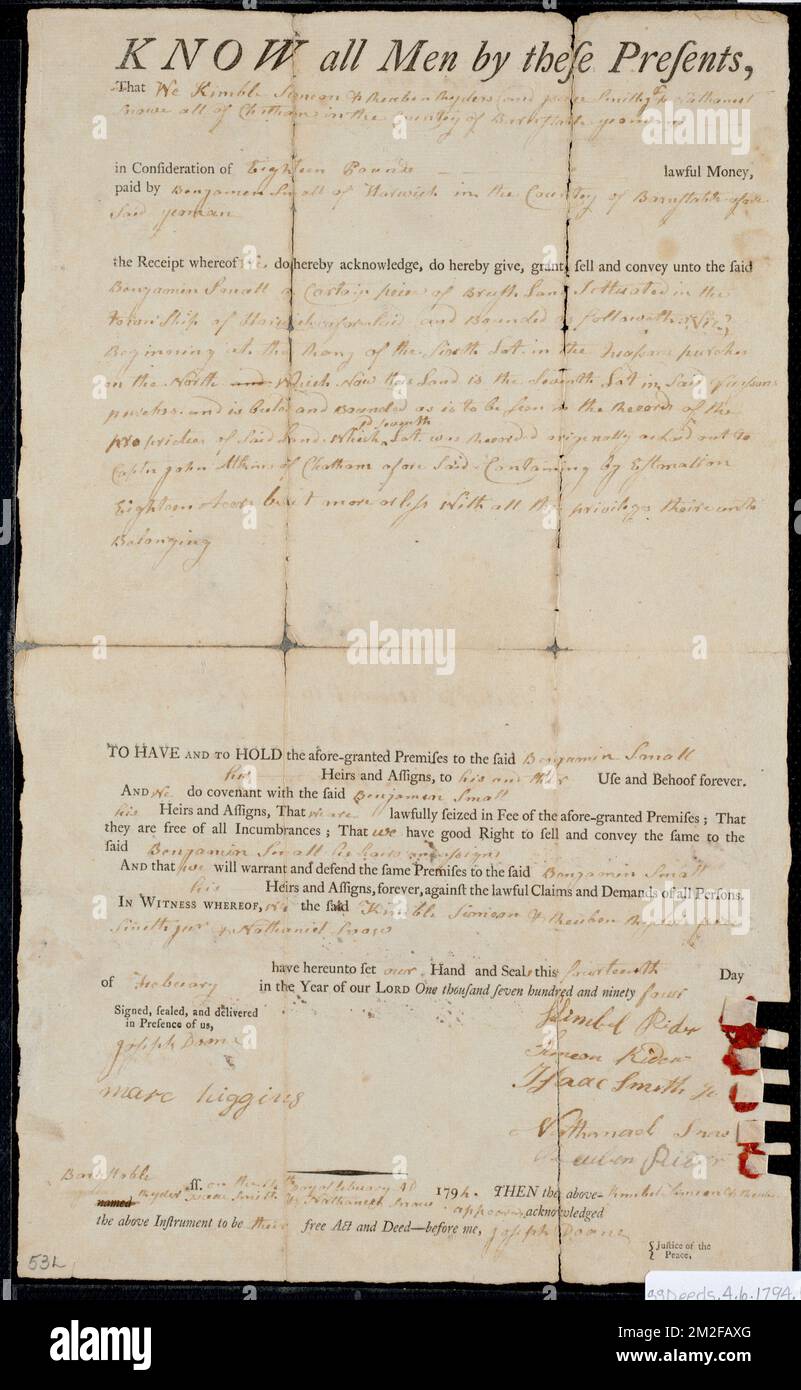 KNOW all Men by theſe Preſents,
That We Kimble Simeon & Reuben Ryders and Smith & Nathaniel
Snow all of Chatham in the County of Barnstable yeomans
in Conſideration of Eighteen Pounds lawful Money,
paid by Benjamen Small of Harwich in the Country of Barnstable afore
Said yeoman
the Receipt whereof we do hereby acknowledge, do hereby give, grant, ſell and convey unto the ſaid
Benjamin Small a Certain peice of Brush Land Sittuated in the
township of Harwich aforesaid and Bounded as followeth (viz)
Beginning at the of the Sixth Lot in the purches
on the North and Which Now this Land is the Seventh Lot in Said
purches and is Buted and Bounded as is to be Seen in the Records of the
of Said Land Which sd seventh Lot was Recorded originally out to
Captn John Atkins of Chatham afore Said Containing by Estemation
Eighteen Acers be it more or less With all the privileges theire unto
Belonging
TO HAVE AND TO HOLD the afore-granted Premiſes to the ſaid Benjamin Small
his Heirs and Aſſigns, to his and their Uſe and Behoof forever.
AND We do covenant with the ſaid Benjamen Small
his Heirs and Aſſigns, That we are lawfully ſeized in Fee of the afore-granted Premiſes; That
they are free of all Incumbrances; That we have good Right to ſell and convey the ſame to the
ſaid Benjamin Small his heirs
AND that we will warrant and defend the ſame Premiſes to the ſaid Benjamin Small
his Heirs and Aſſigns, forever, againſt the lawful Claims and Demands of all Perſons.
IN WITNESS WHEREOF, We the ſaid Kimble Simeon & Reuben Ryders
Smith jur & Nathaniel Snow
have hereunto ſet our Hand and Seals this fourteenth Day
of Febuary in the Year of our LORD One thouſand ſeven hundred and ninety four
Signed, ſealed, and delivered
in Preſence of us,
Joseph Doane
marc higgins
Kimbel Rider
Simeon Rider
Isaac Smith Jr
Nathanael Snow
Reuben Rider
Barnstable ſſ. on the Day of febuary AD 1794. THEN the above- Kimbel Simeon &
named Ryder Isaac Smith & Nathaniel Snow appeared acknowledged
the above Inſtrument to be their free Act and Deed—before me, Joseph Doane
{Juſtice of the
Peace,
53L
ggDeeds.4.6.1794.
alamy
Image ID: 2M2FAXG
www.alamy.com